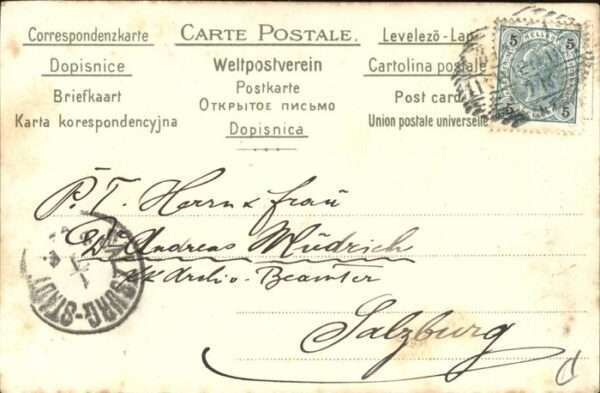 Correspondenzkarte
CARTE POSTALE.
Levelező-Lap
Dopisnice
Weltpostverein
Cartolina postale
Briefkaart
Postkarte
Post card
Karta korespondencyjna
ОТКРЫТОЕ ПИСЬМО
Union postale universelle
Dopisnica
5 5
5 5
P. T. Herrn & Frau
Andreas Müdrich
KK Archiv-Beamter
Salzburg
SALZBURG-STADT